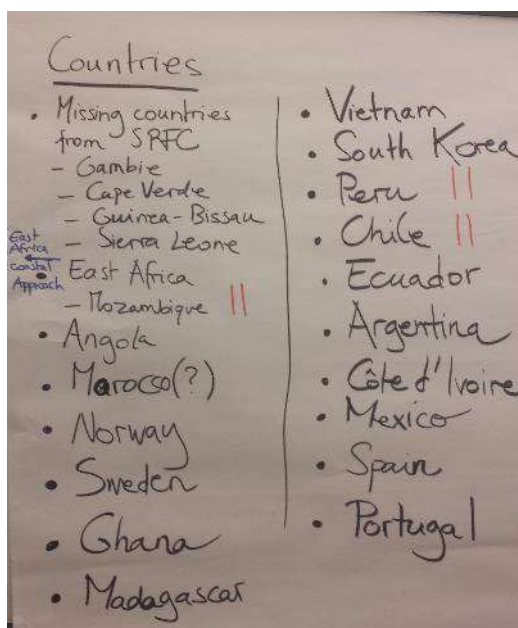 Countries
• Missing countries
from SRFC
- Gambie
- Cape Verde
- Guinea-Bissau
- Sierra Leone
East
Africa
coastal
Approach
• East Africa
- Mozambique ||
• Angola
• Marocco(?)
• Norway
• Sweden
• Ghana
• Madagascar
• Vietnam
• South Korea
• Peru ||
• Chile ||
• Ecuador
• Argentina
• Côte d'Ivoire
• Mexico
• Spain
• Portugal